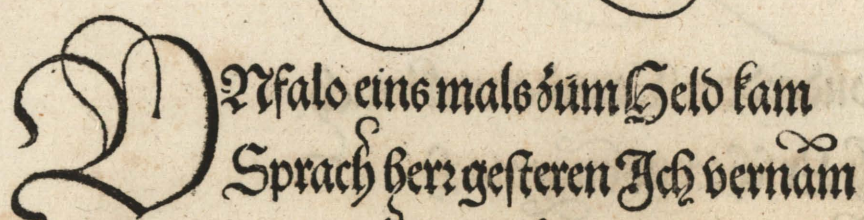 VNfalo eins mals zům Held kam
Sprach herr gesteren Ich vernam